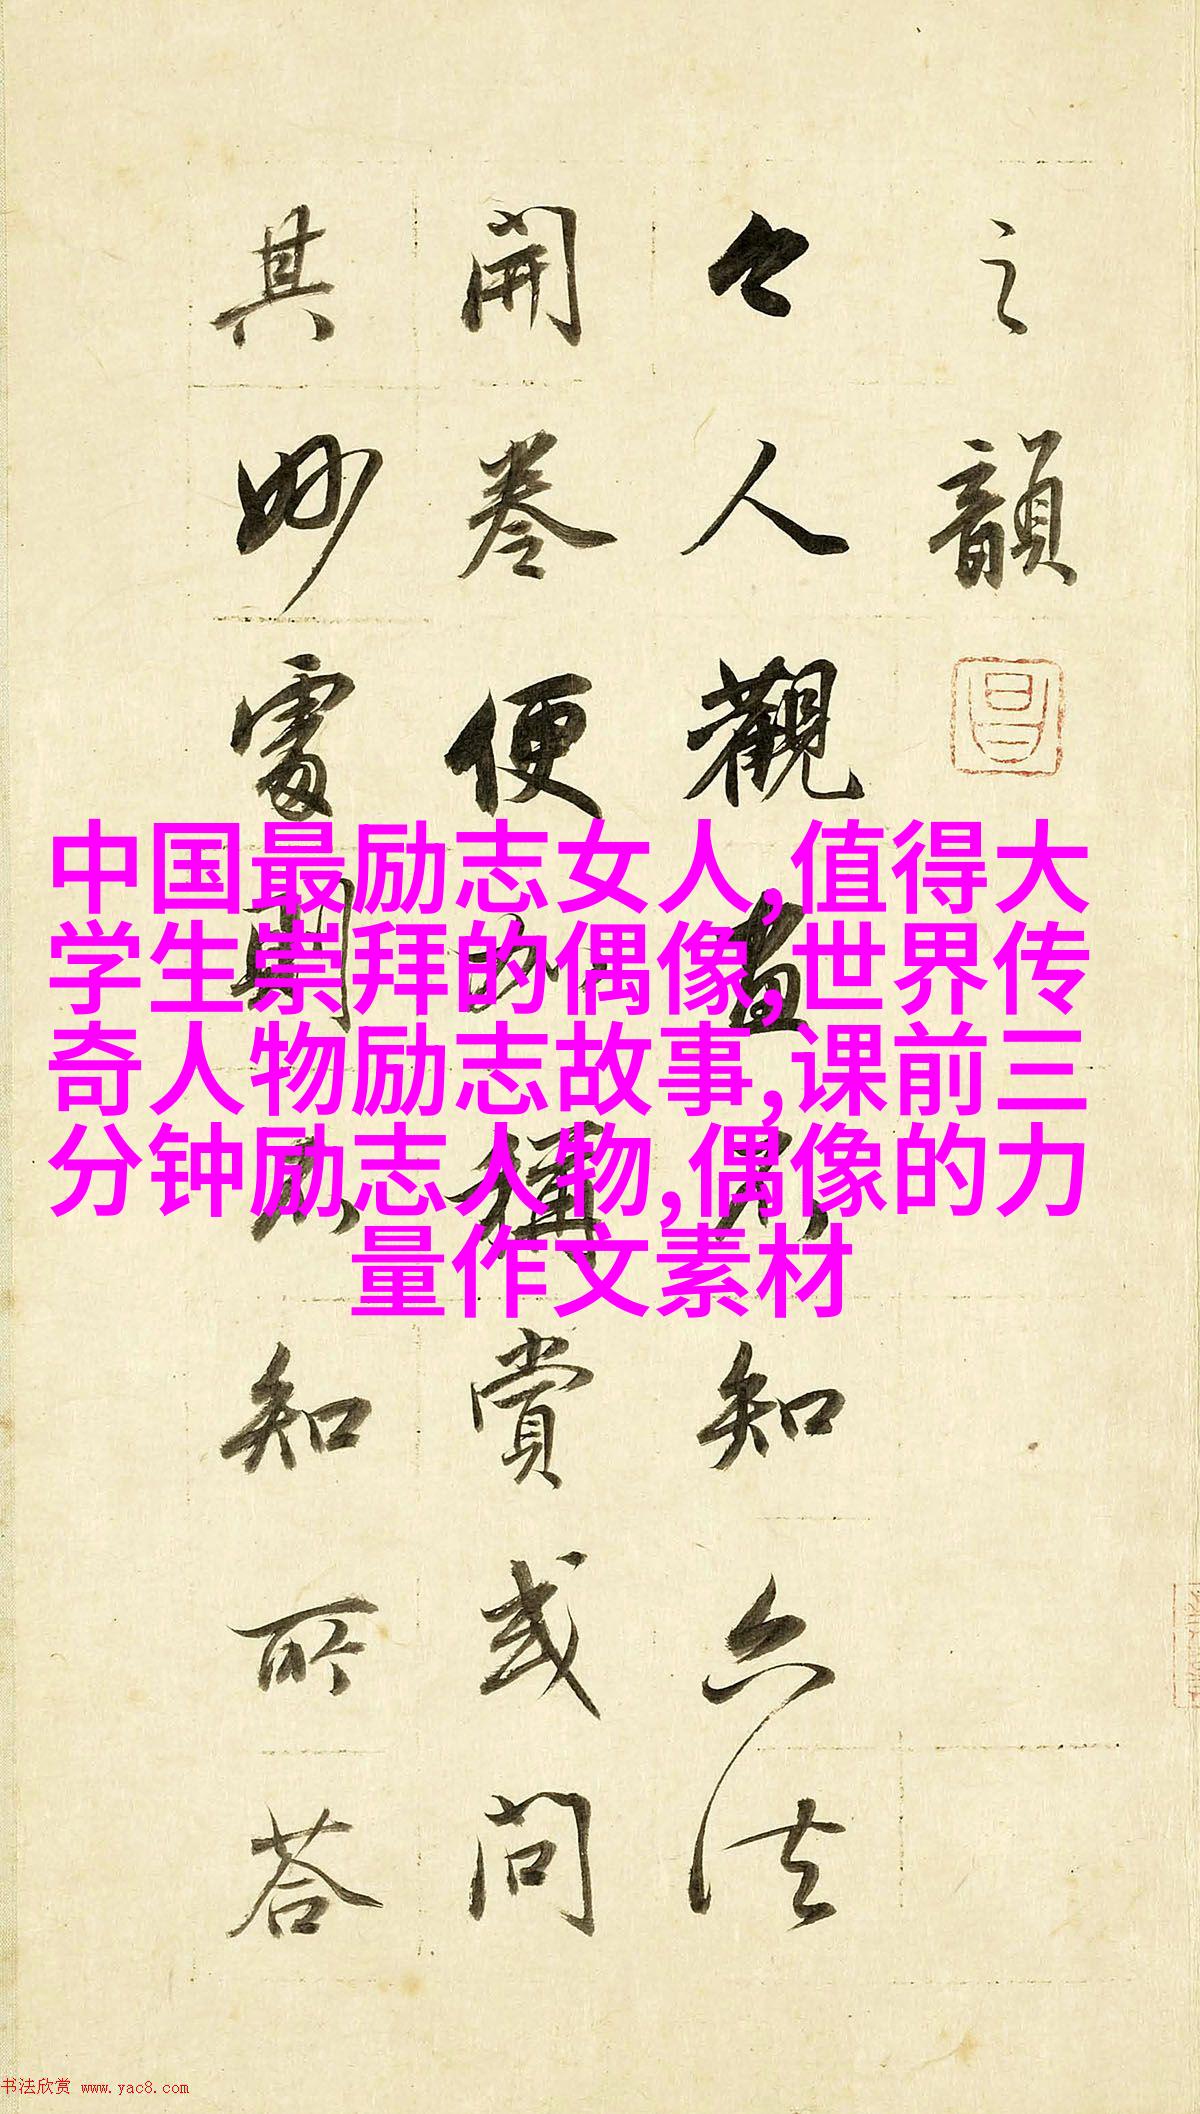 之韻
今人觀畫不知六法
開卷便加稱賞或問
其妙處則不知所答
中国最励志女人,值得大
学生崇拜的偶像,世界传
奇人物励志故事,课前三
分钟励志人物,偶像的力
量作文素材
书法欣赏 www.yac8.com